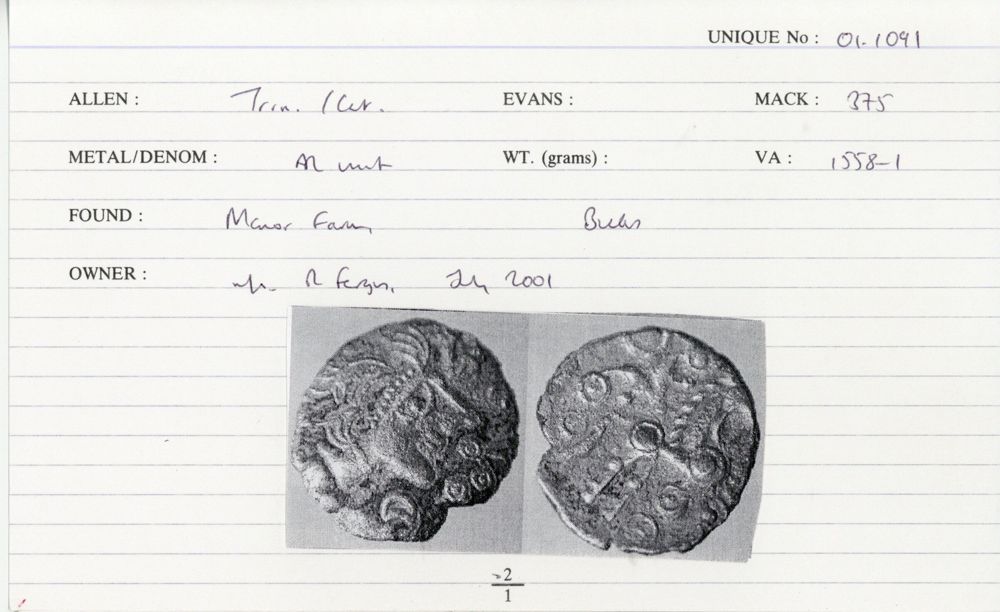 UNIQUE No : 01.1091
ALLEN : Trin. / Cat. EVANS : MACK : 375
METAL/DENOM : AR unit WT. (grams) : VA : 1558-1
FOUND : Manor Farm, Bucks
OWNER : R Fergus, July 2001
2
1